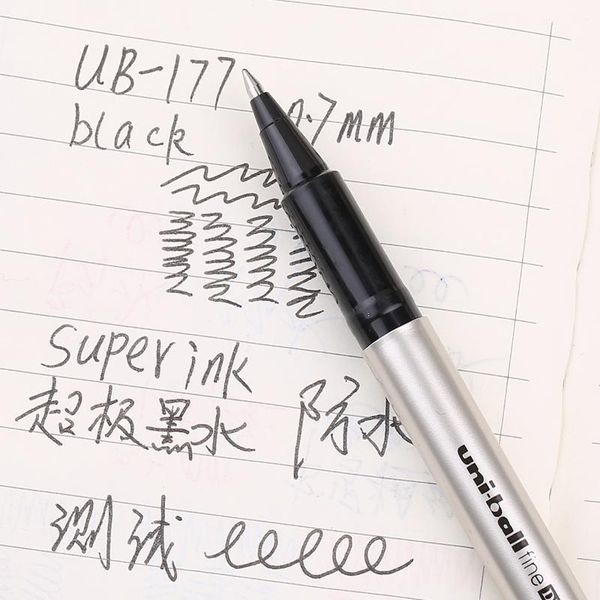 UB-177
black 0.7mm
Super ink
超极黑水 防水
测试
uni-ball fine